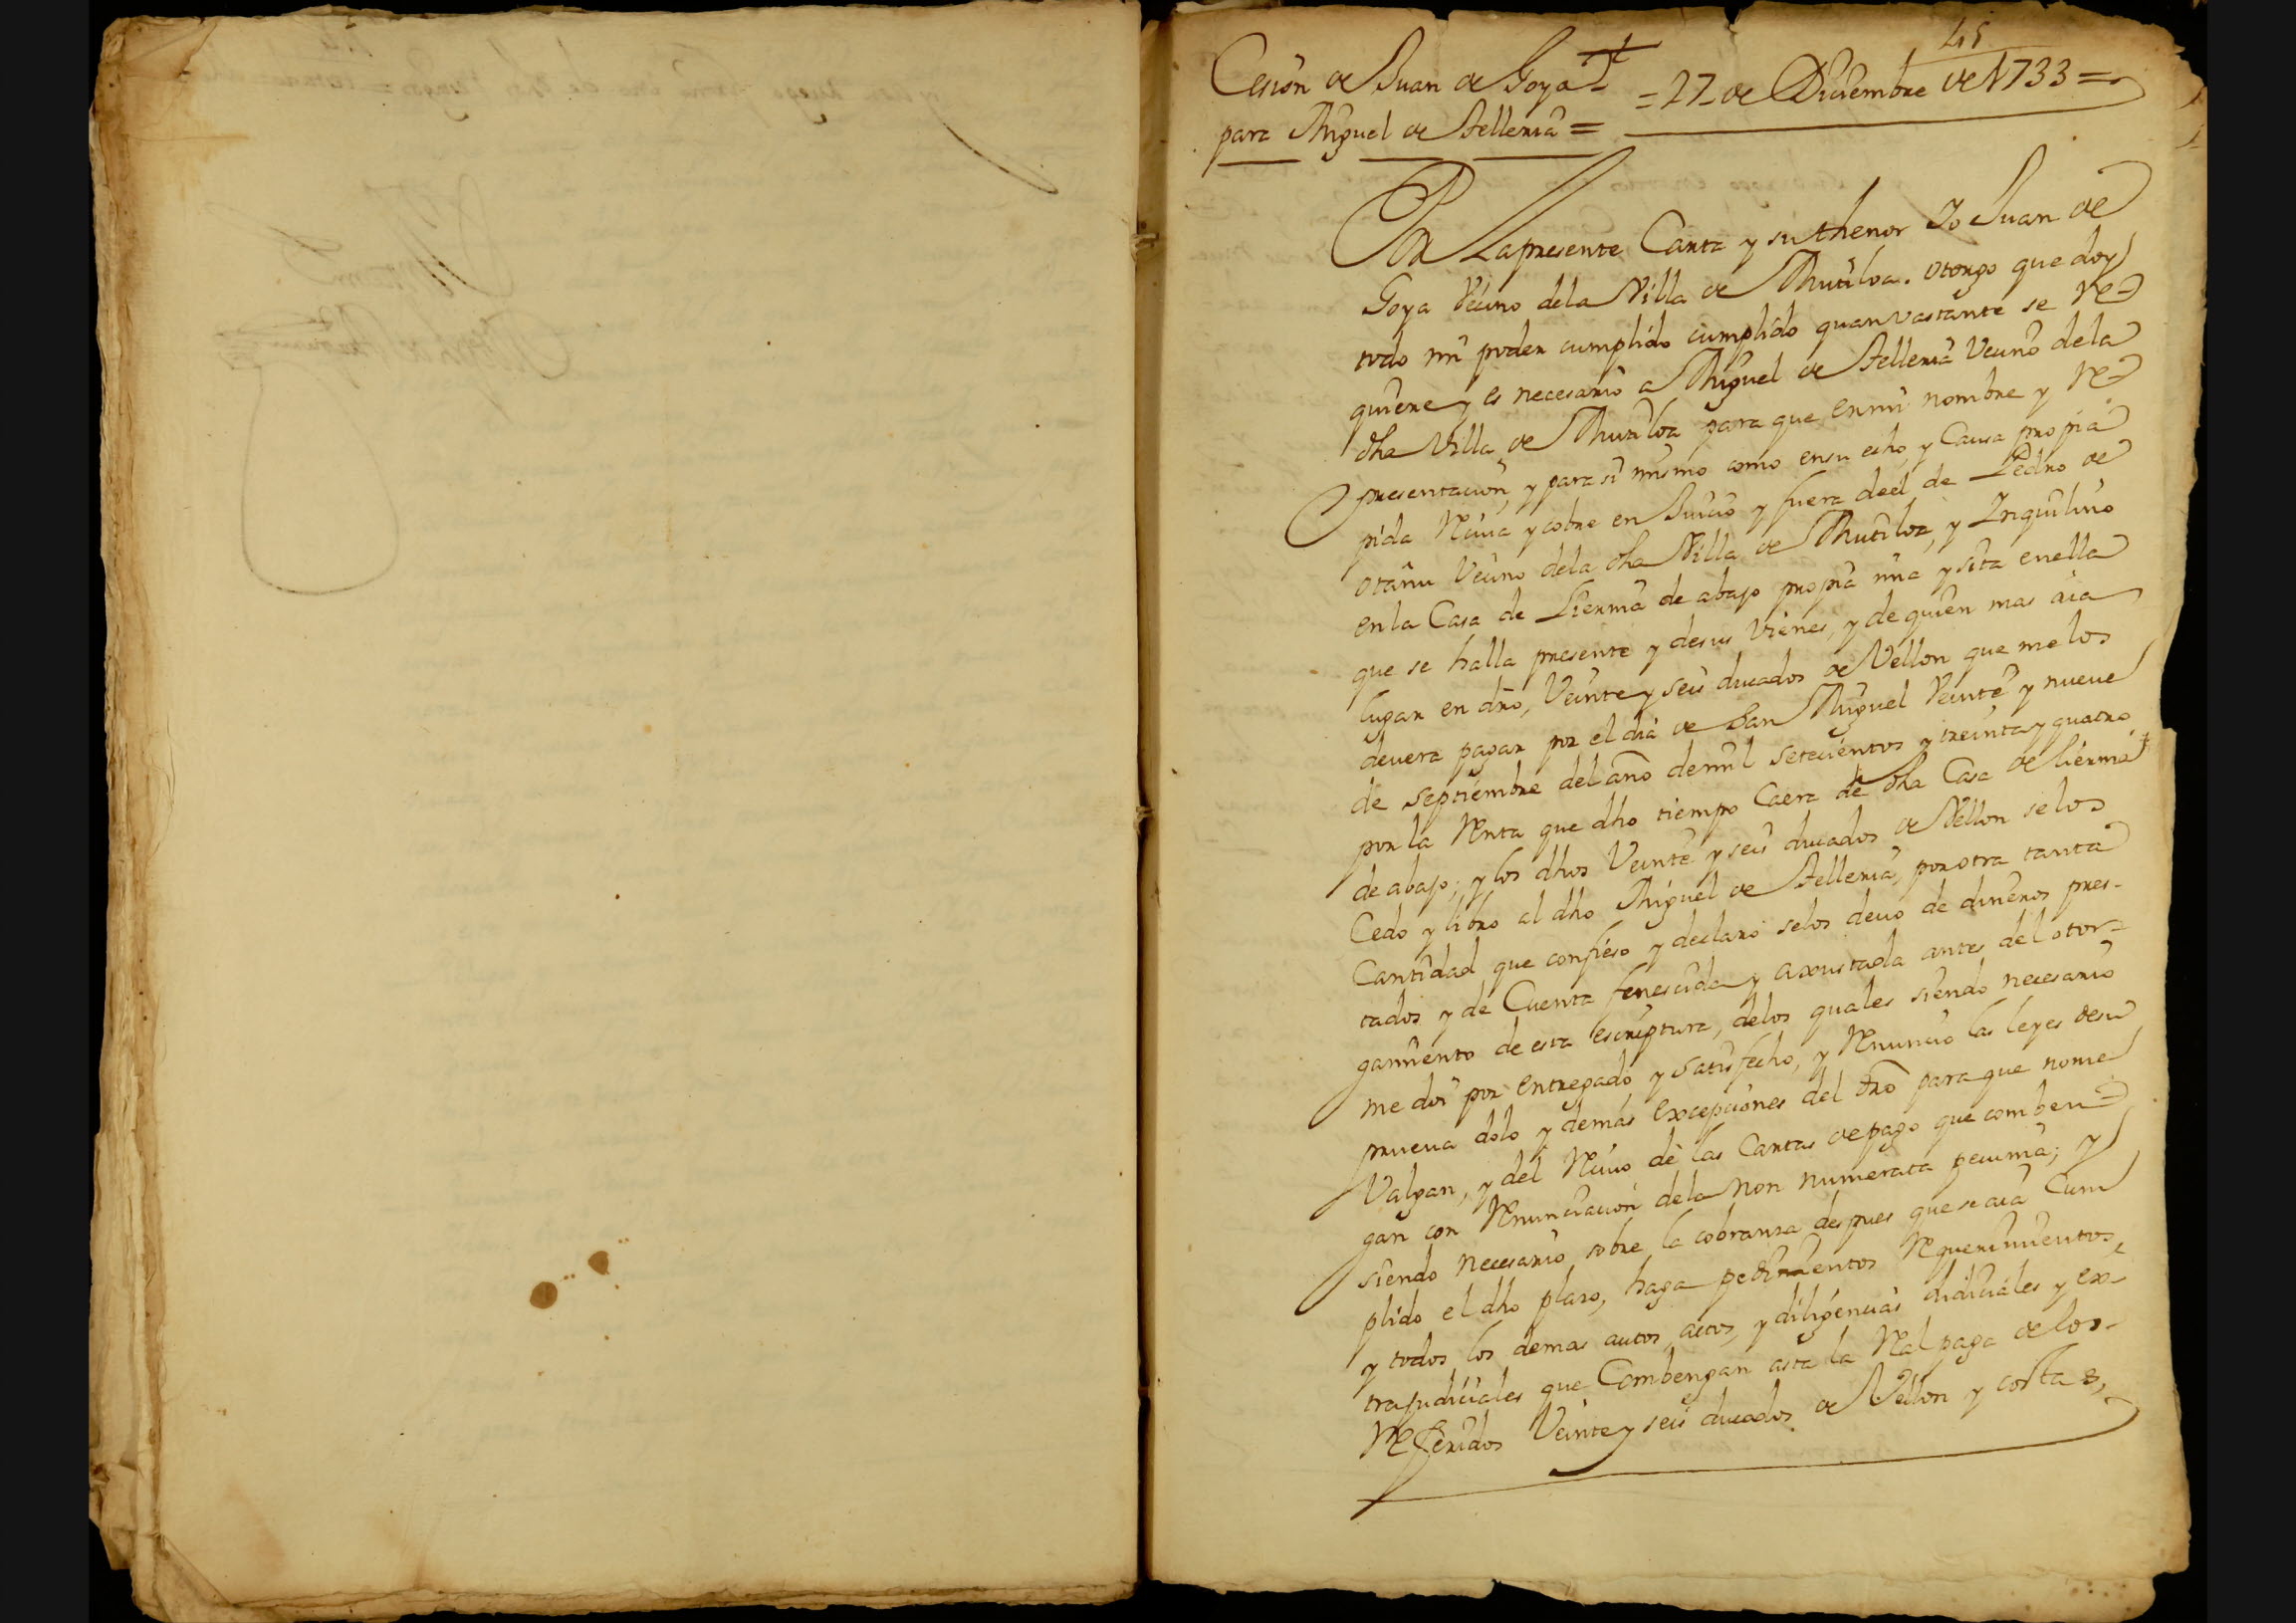 45
Cesion de Juan de Goya
= 27 de Diciembre de 1733 =
para Miguel de Telleria =
Por La presente Carta y su thenor Yo Juan de
Goya Vecino dela Villa de Mutiloa. otorgo que doy
todo mi poder cumplido cumplido quan vastante se Re=
quiere y es necesario a Miguel de Telleria Vecino dela
dha Villa de Mutiloa para que en mi nombre y Re=
presentacion, y para si mismo como en su echo, y Causa propia
pida Reciua y cobre en Juicio y fuera deel de Pedro de
otañu Vecino dela dha Villa de Mutiloa, y Inquilino
en la Casa de Lierma de abajo propia mia y sita enella
que se halla presente y desus vienes, y de quien mas aia
lugar en dro, Veinte y seis ducados de Vellon que me los
deuera pagar por el dia de San Miguel Veinte y nueue
de septiembre del año demil setecientos y treinta y quatro
por la Renta que dho tiempo Caera de dha Casa de lierma
de abajo; y los dhos Veinte y seis ducados de Vellon selos
Cedo y libro al dho Miguel de Telleria, por otra tanta
Cantidad que confieso y declaro selos deuo de dineros pres-
tados y de Cuenta fenescida y axustada antes del otor=
gamiento de esta escriptura, delos quales siendo necesario
me doi por entregado, y satisfecho, y Renuncio las leyes desu
prueua dolo y demas excepciones del dro para que nome
Valgan, y del Reciuo de las Cartas de pago que comben=
gan con Renunciacion dela non numerata pecunia; y
siendo necesario sobre la cobranza despues que se aia Cum
plido el dho plaso, haga pedimentos Requerimientos,
y todos los demas autos, actos, y diligencias Judiciales y ex-
trajudiciales que Combengan asta la Real paga delos-
Referidos Veinte y seis ducados de Vellon y costas,